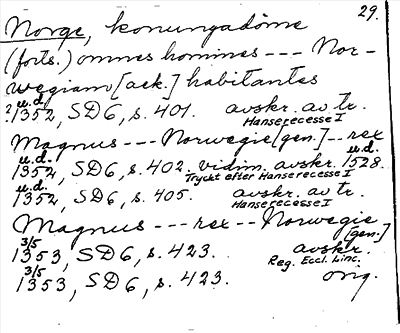 29.
Norge, konungadöme
(forts.) omnes homines --- Nor-
wegiam [ack.] habitantes
u.d.
?1352, SD6, s. 401. avskr. av tr.
Hanserecesse I
Magnus --- Norwegie [gen.] -- rex
u.d. u.d.
1352, SD6, s. 402. vidim. avskr. 1528.
Tryckt efter Hanserecesse I
u.d.
1352, SD6, s. 405. avskr. av tr.
Hanserecesse I
Magnus --- rex -- Norwegie
[gen.]
3/5
1353, SD6, s. 423. avskr.
Reg. Eccl. Linc.
3/5
1353, SD6, s. 423. orig.